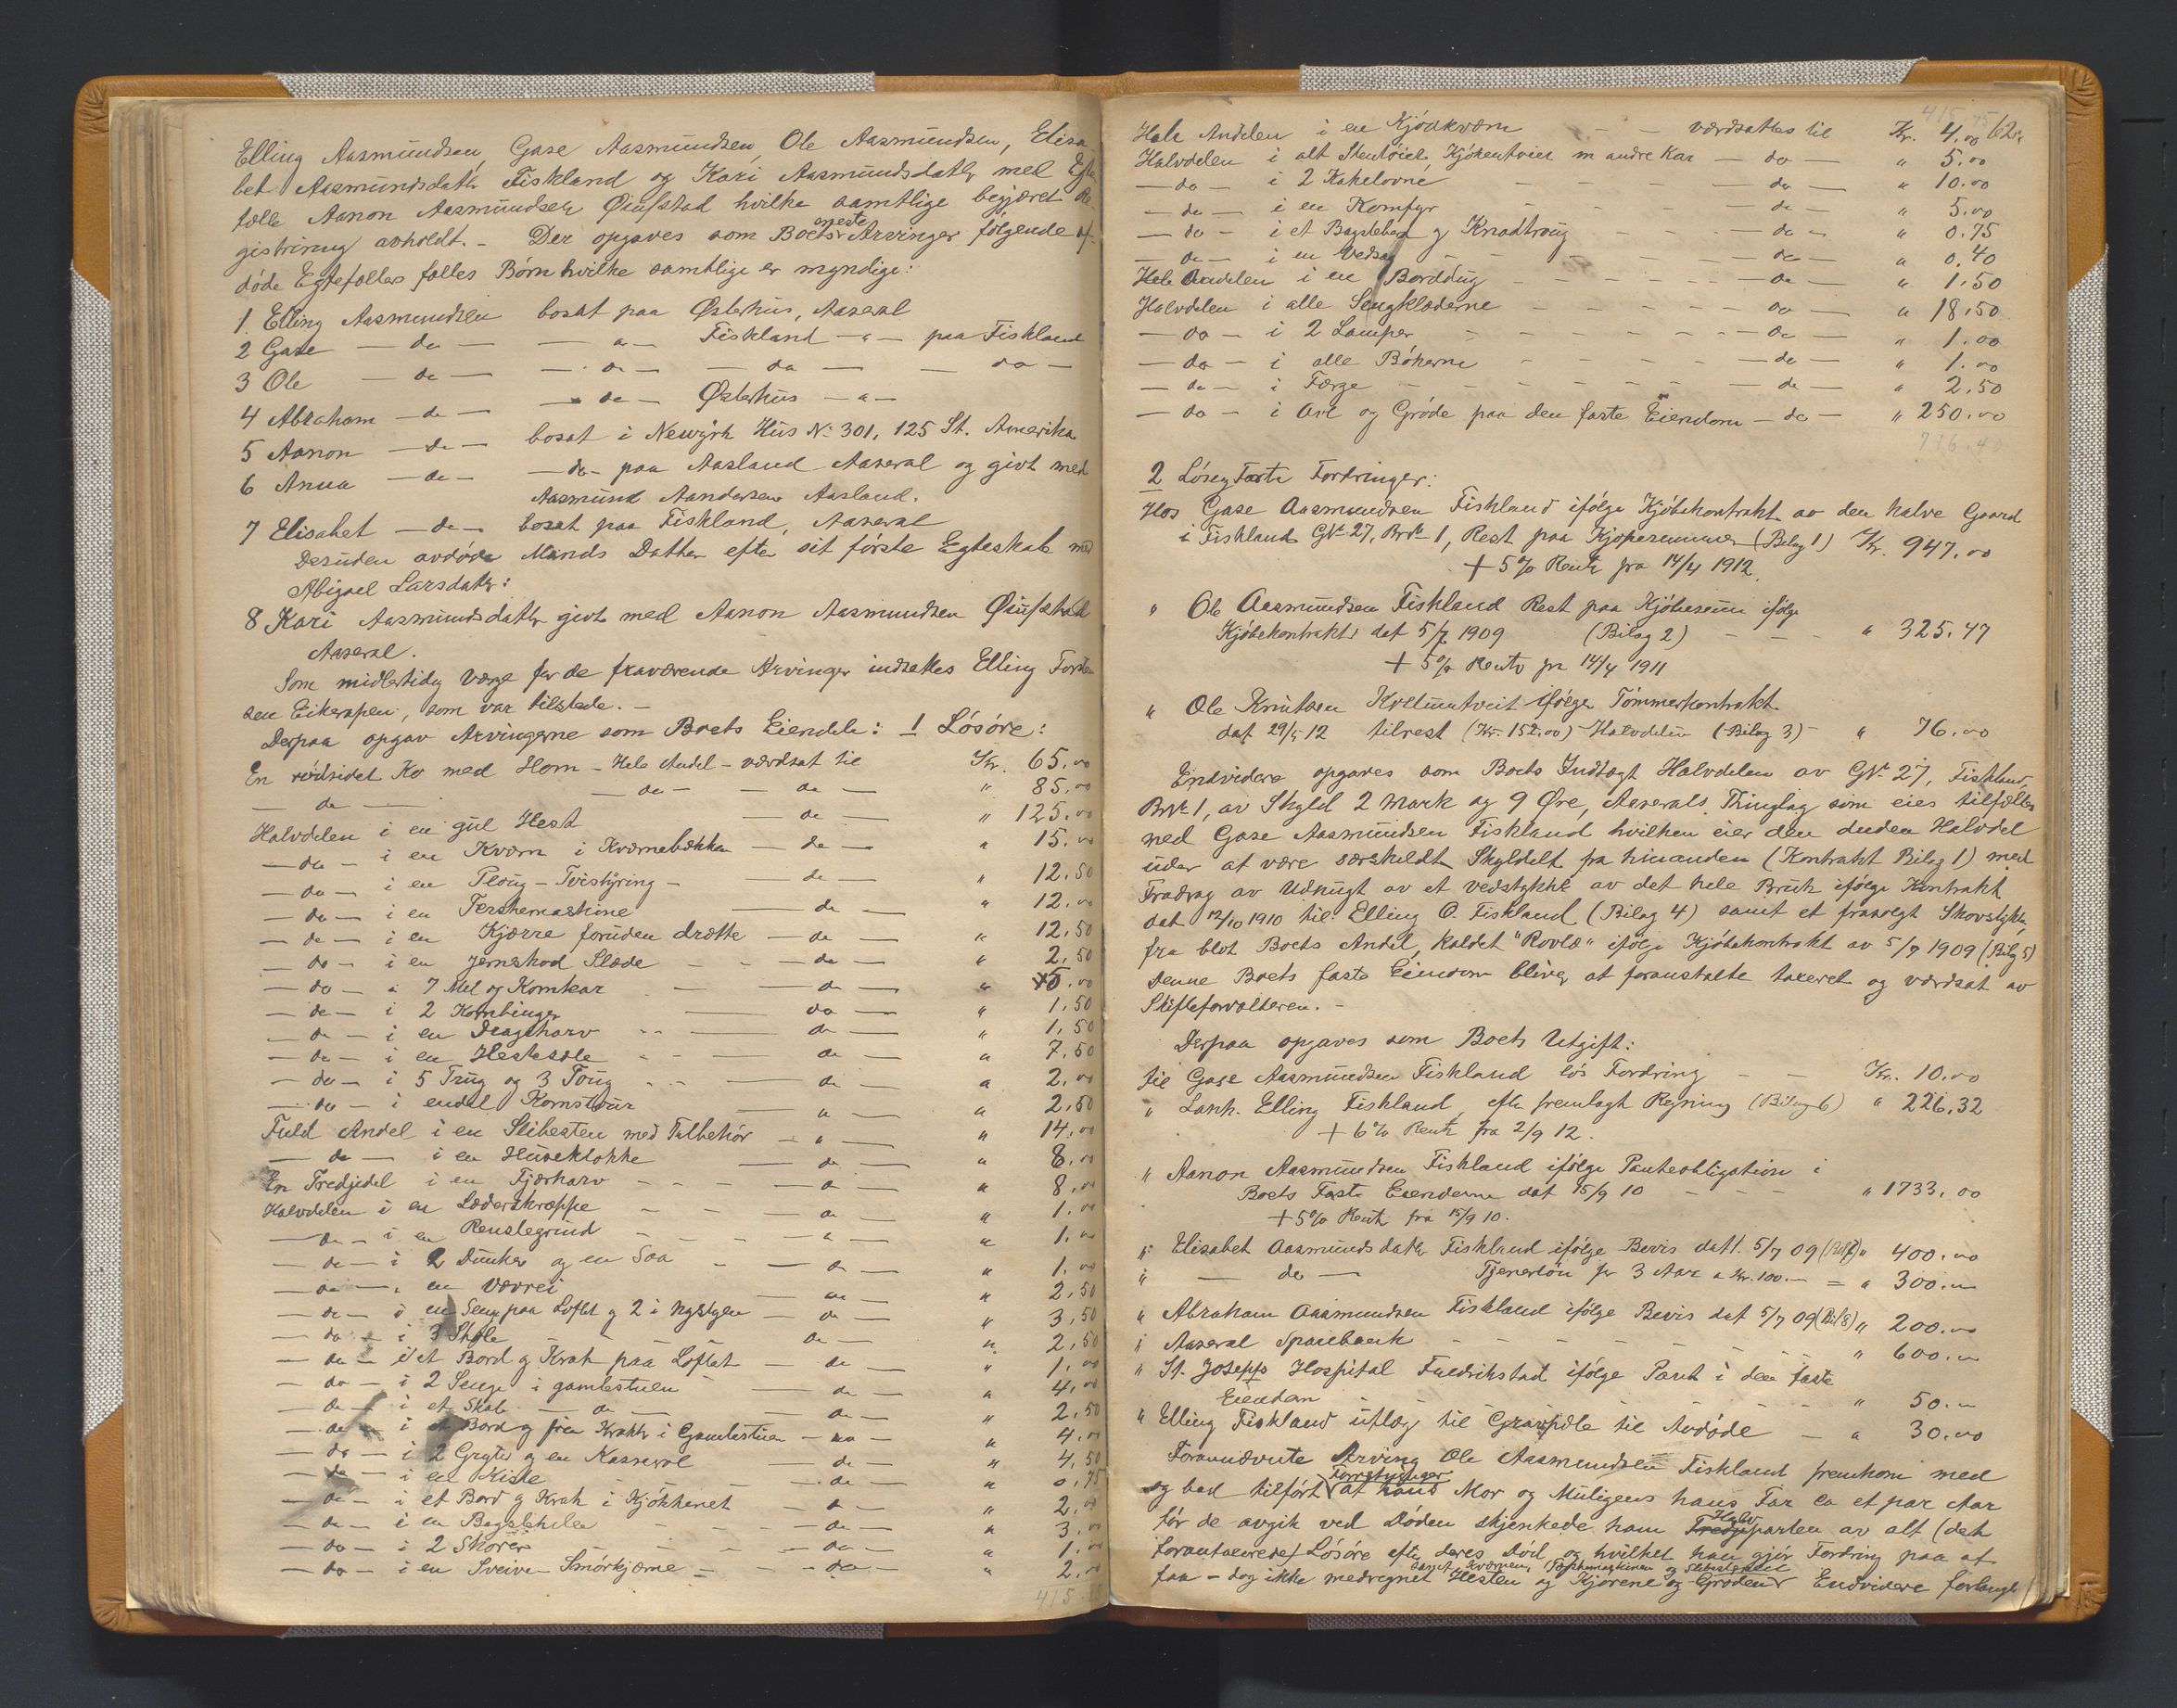 Elling Aasmundsen, Gase Aasmundsen, Ole Aasmundsen, Elisa-
bet Aasmundsdatr Fiskland og Kari Aasmundsdatr med Egte-
fælle Aanon Aasmundsen Øiufstad hvilke samtlige begjæret Re-
gistrering avholdt. - Der opgaves som Boets neste Arvinger følgende af-
døde Egtefællers fælles Børn hvilke samtlige er myndige:
1. Elling Aasmundsen bosat paa Østerhus, Aaseral
2 Gase — do — — " — Fiskland — " — paa Fiskland
3 Ole — do — — do — — do — — do —
4 Abraham — do — — do — Østerhus — " —
5 Aanon — do — bosat i Newyrk Hus No 301, 125 St. Amerika
6 Anna — do — — do — paa Aasland Aaseral og givt med
Aasmund Aandersen Aasland.
7 Elisabet — do — bosat paa Fiskland, Aaseral
Desuden avdøde Mands Datter efter sit første Egteskab med
Abigael Larsdatr:
8 Kari Aasmundsdatr givt med Aanon Aasmundsen Øiufstad
Aaseral.
Som midlertidig Værge for de fraværende Arvinger indsattes Elling Torkel-
sen Eikerapen, som var tilstede. -
Derpaa opgav Arvingerne som Boets Eiendele: 1 Løsøre:
En rødsidet Ko med Horn - Hele Andel - værdsat til Kr. 65.00
— do — — do — — do — " 85.00
Halvdelen i en gul Hest — do — " 125.00
— do — i en Kværn i Kværnebækken — do — " 15.00
— do — i en Ploug - Tvistyring - — do — " 12.50
— do — i en Terskemaskine — do — " 12.00
— do — i en Kjærre foruden drætte — do — " 12.50
— do — i en Jernskod Slæde — do — " 2.50
— do — " 7 Mel og Kornkar — do — "
— do — i 2 Kornbinger — do — " 1.50
— do — i en Dragsharv — do — " 1.50
— do — i en Hestesæle — do — " 7.50
— do — i 5 Trug og 3 Toug — do — " 2.00
— do — i endel Kornstour — " — " 2.50
Fuld Andel i en Slibesten med Tilbehør — " — " 14.00
— do — i en Huseklokke — do — " 8.00
En Tredjedel i en Fjærharv — do — " 8.00
Halvdelen i en Læderskreppe — do — " 1.00
— do — i en Renslegrind — " — " 1.00
— do — i 2 Dunker og en Saa — do — " 1.00
— do — " en Vævrei — do — " 2.50
— do — i en Seng paa Loftet og 2 i Nystuen — do — " 3.50
— do — i 3 Stole — do — " 2.50
— do — i et Bord og Krak paa Loftet — do — " 1.00
— do — i 2 Senge i gamlestuen — do — " 4.00
— do — i et Skab — do — — do — " 2.50
— do — i et Bord og fire Krakker i Gamlestuen — do — " 4.00
— do — i 2 Gryter og en Kasserol — do — " 4.50
— do — i en Kiste — do — " 0.75
— do — i et Bord og Krak i Kjøkkenet — do — " 2.00
— do — i en Bagstehelle — do — " 3.00
— do — i 2 Skorer — do — " 1.00
— do — i en Sveive Smørkjærne — do — " 2.00
415
62.
Hele Andelen i en Kjønkværn — værdsattes til Kr. 4.00
Halvdelen i alt Stentøiet, Kjøkentøiet m andre Kar — do — " 5.00
— do — i 2 Kakelovne — do — " 10.00
— do — i en Komfyr — do — " 5.00
— do — i et Bagstebord og Knadtroug — do — " 0.75
— do — i en Vedsag — do — " 0.40
Hele Andelen i en Borddug — do — " 1.50
Halvdelen i alle Sengklæderne — do — " 18.50
— do — i 2 Lamper — do — " 1.00
— do — i alle Bøkerne — do — " 1.00
— do — i Færge — do — " 2.50
— do — i Avl og Grøde paa den faste Eiendom — do — " 250.00
2 Løse og Faste Fordringer:
Hos Gase Aasmundsen Fiskland ifølge Kjøbekontrakt av den halve Gaard
i Fiskland GNr. 27, BrNr. 1, Rest paa Kjøpesummen (Bilag 1) Kr. 947.00
+ 5 % Rente fra 14/4 1912.
" Ole Aasmundsen Fiskland Rest paa Kjøbesum ifølge
Kjøbekontrakt dat 5/7 1909 (Bilag 2) — " 325.47
+ 5 % Rente fra 14/4 1911
" Ole Knutsen ifølge Tømmerkontrakt
dat 29/5 12 tilrest (Kr. 152.00) - Halvdelen (Bilag 3) - " 76.00
Endvidere opgaves som Boets Indtægt Halvdelen av GNr. 27, Fiskland,
BrNr. 1, av Skyld 2 Mark og 9 Øre, Aaserals Thinglag som eies tilfælles
med Gase Aasmundsen Fiskland hvilken eier den anden Halvdel
uden at være særskildt Skyldelt fra hinanden (Kontrakt Bilag 1) med
Fradrag av Udnugt av et vedstykke av det hele Bruk ifølge Kontrakt
dat 12/10 1910 til Elling O. Fiskland (Bilag 4) samt et frasolgt Skovstykke
fra blot Boets Andel, kaldet "Rovlæ" ifølge Kjøbekontrakt av 5/7 1909 (Bilag 5)
Denne Boets faste Eiendom bliver at foranstalte takseret og værdsat av
Skifteforvalteren. -
Derpaa opgaves som Boets Utgift:
til Gase Aasmundsen Fiskland løs Fordring — Kr. 10.00
" Lank. Elling Fiskland, efter fremlagt Regning (Bilag 6) " 226.32
+ 6 % Rente fra 2/9 12.
" Aanon Aasmundsen Fiskland ifølge Panteobligation i
Boets Faste Eiendom dat 15/9 10 — " 1733.00
+ 5 % Rente fra 15/9 10.
" Elisabet Aasmundsdatr Fiskland ifølge Bevis dat. 5/7 09 (Bil 7) " 400.00
" — do — Tjenerløn for 3 Aar a Kr. 100.— = " 300.—
" Abraham Aasmundsen Fiskland ifølge Bevis dat 5/7 09 (Bil 8) " 200.00
" Aaseral Sparebank — " 600.—
" St. Josephs Hospital Fredrikstad ifølge Pant i den faste
Eiendom — " 50.—
" Elling Fiskland utlæg til Gravøl til Avdøde — " 30.00
Forannævnte Arving Ole Aasmundsen Fiskland fremkom med
og bad tilført at hans Mor og Muligens hans Far ca et par Aar
før de avgik ved Døden skjenkede ham Halvparten av alt (det
forantaxerede) Løsøre efter deres Død og hvilket han gjør Fordring paa at
faa - dog ikke medregnet Hesten samt Kværnen, Terskemaskinen og Slibestenen og Kjørene og Grøden. Endvidere forlangte